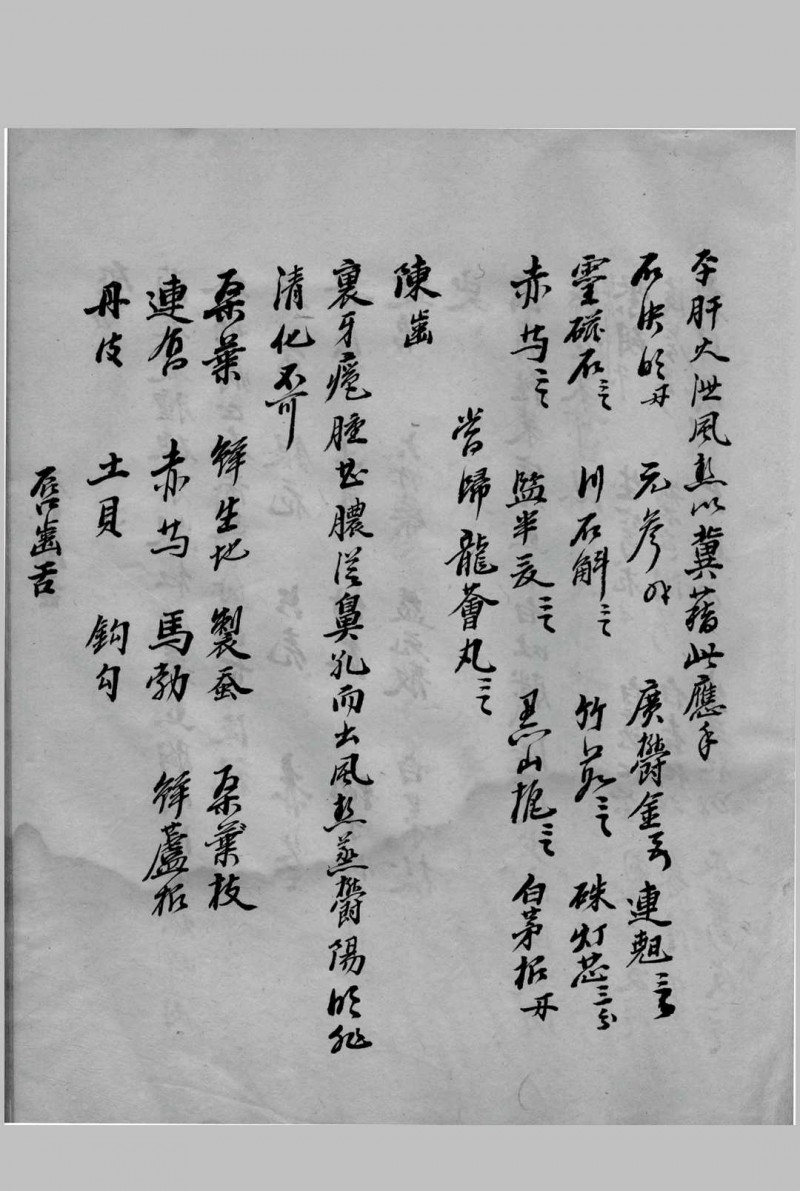 平肝火泄風熱以冀藉此應手
石決明 元參 廣鬱金 連翹
靈磁石 川石斛 竹茹 硃灯芯三分
赤芍 監半夏 黑山梔 白茅根
當歸龍薈丸
陳 齒
裏牙癰腫甚膿從鼻孔而出風熱蒸鬱陽明非
清化不可
桑葉 鮮生地 製蚕 桑葉枝
連翹 赤芍 馬勃 鮮蘆根
丹皮 土貝 鈎勾
唇齒舌